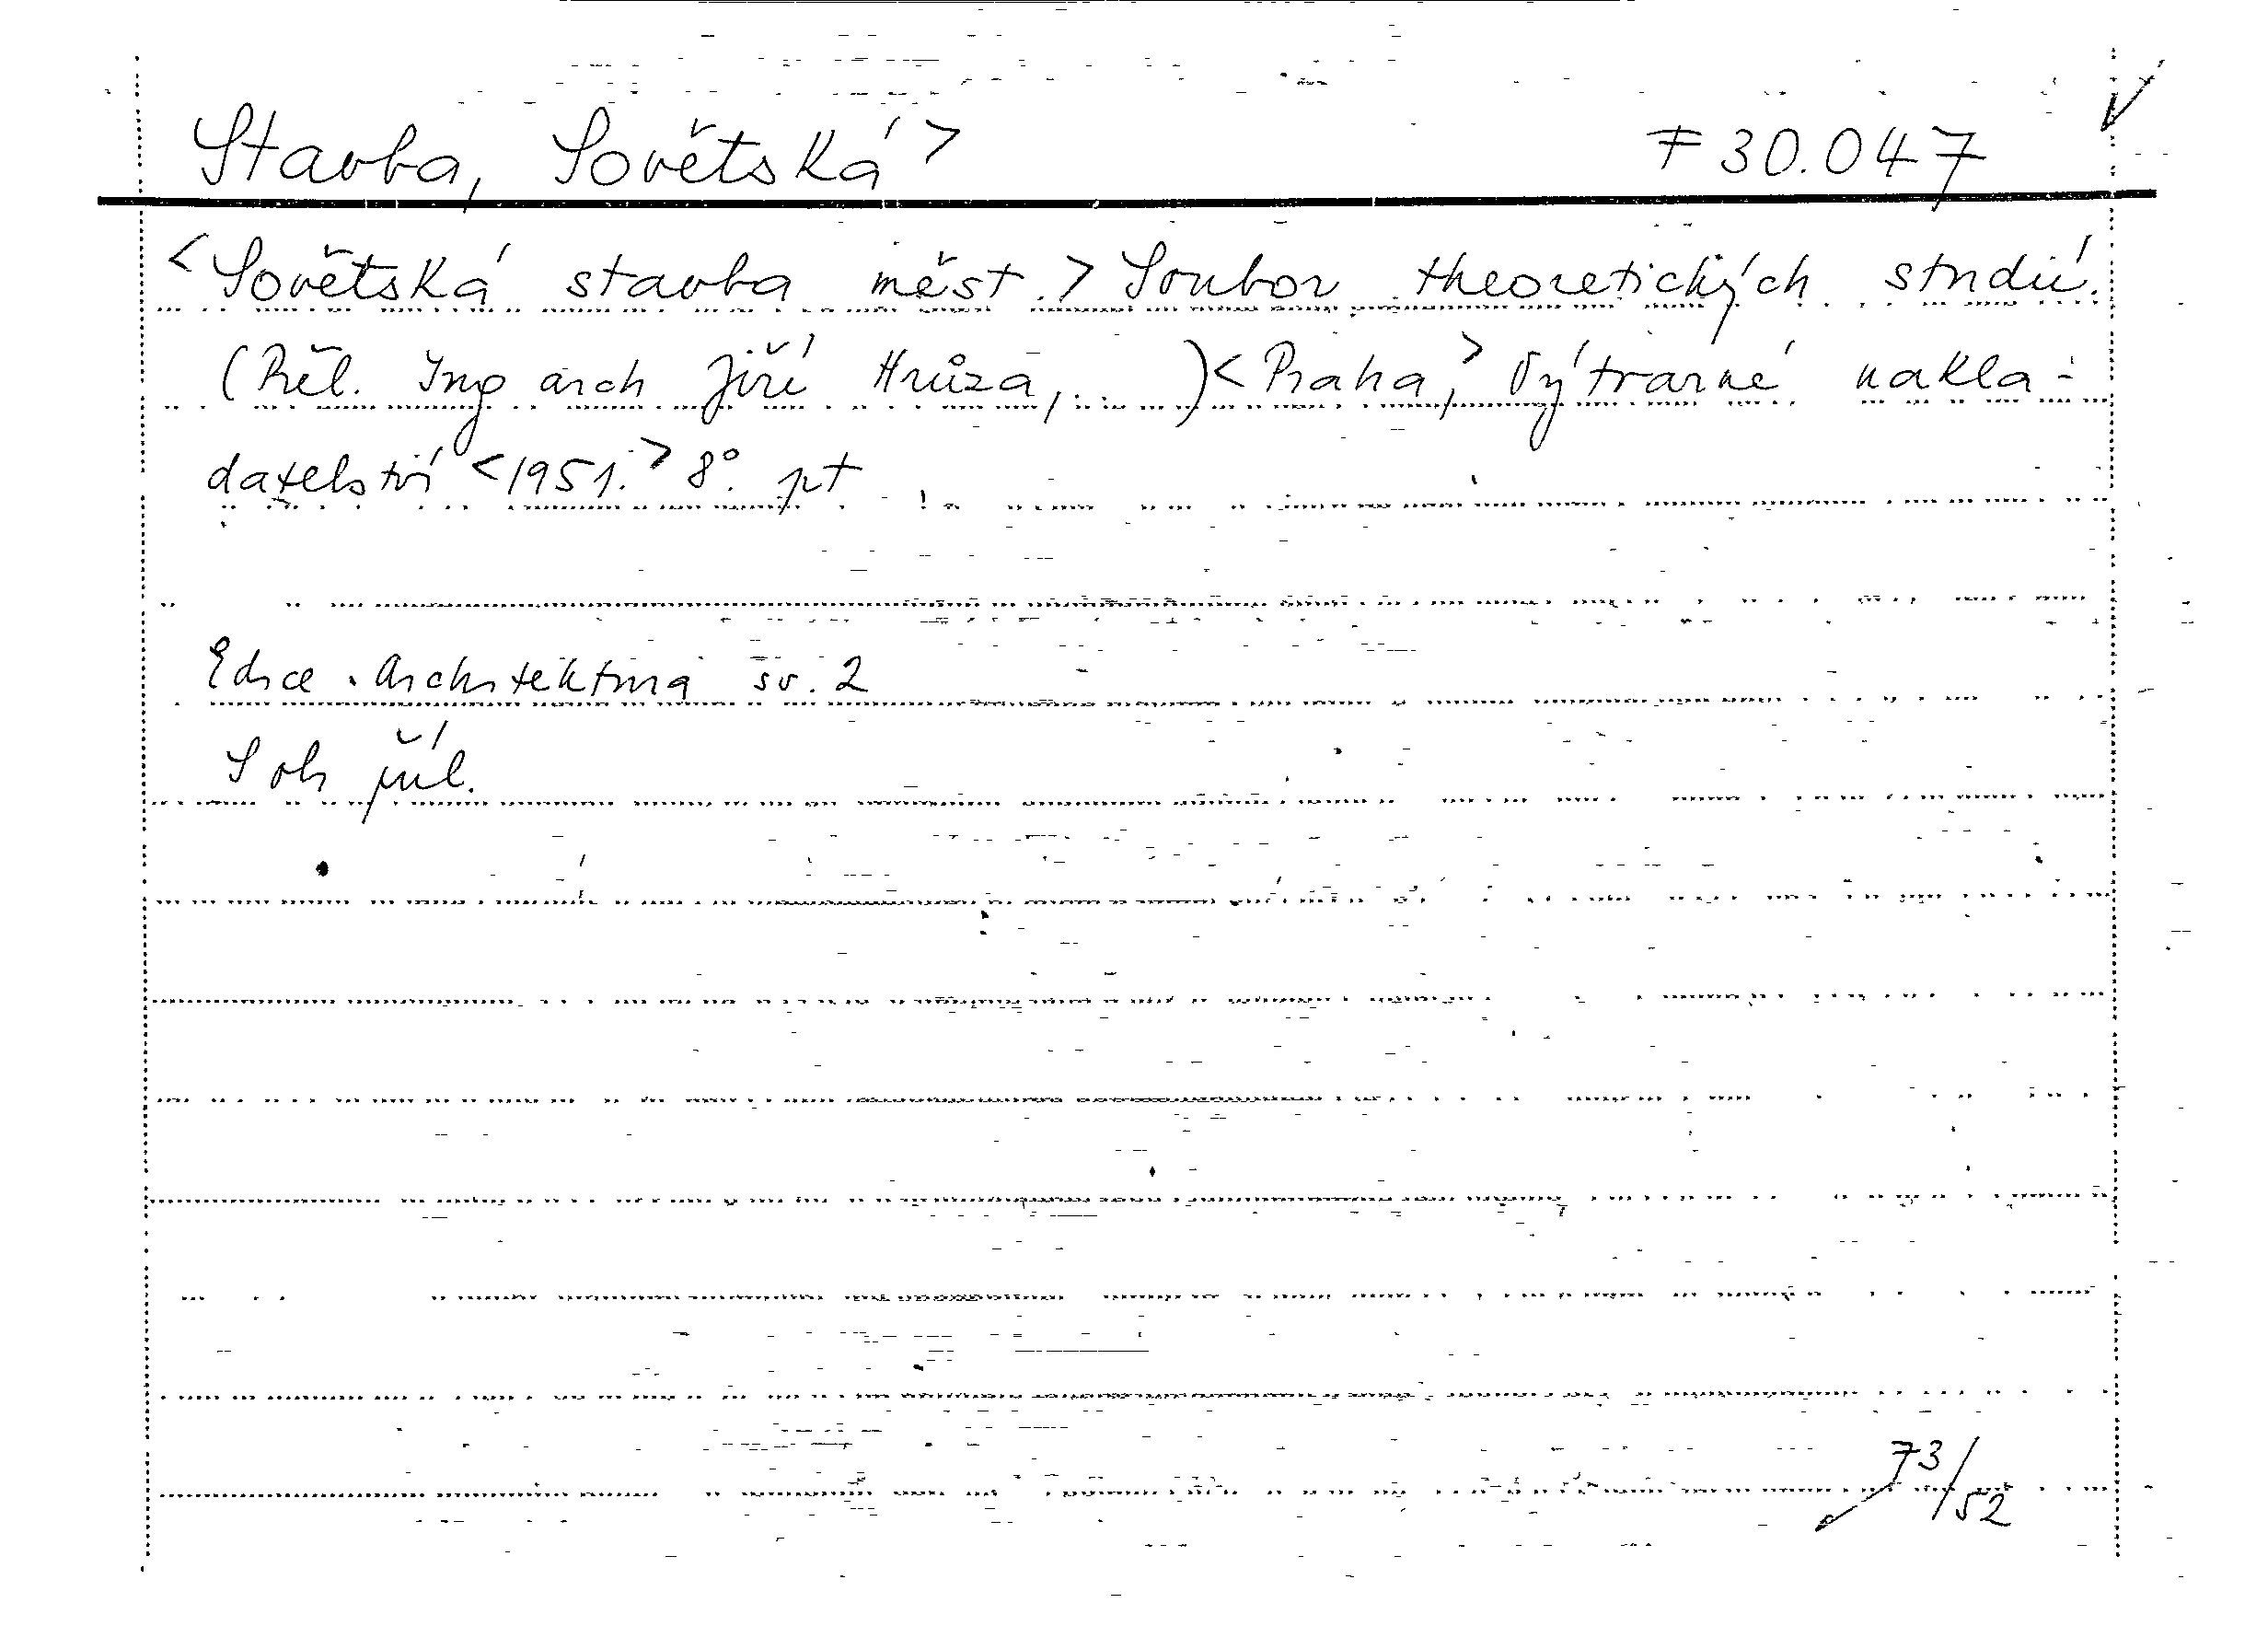 Stavba, Sovětská > F 30.047
<Sovětská stavba měst.> Soubor theoretických studií.
(Přel. Ing arch Jiří Hrůza, ... )<Praha,> Výtvarné nakla-
datelství <1951.> 8°. pt
Edice Architektura sv. 2
S ob příl.
73/52